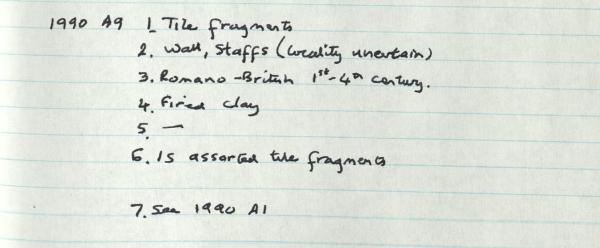 1990 A9 1. Tile fragments
2. Wall, Staffs (locality uncertain)
3. Romano-British 1st-4th century.
4. Fired clay
5. —
6. 15 assorted tile fragments
7. See 1990 A1